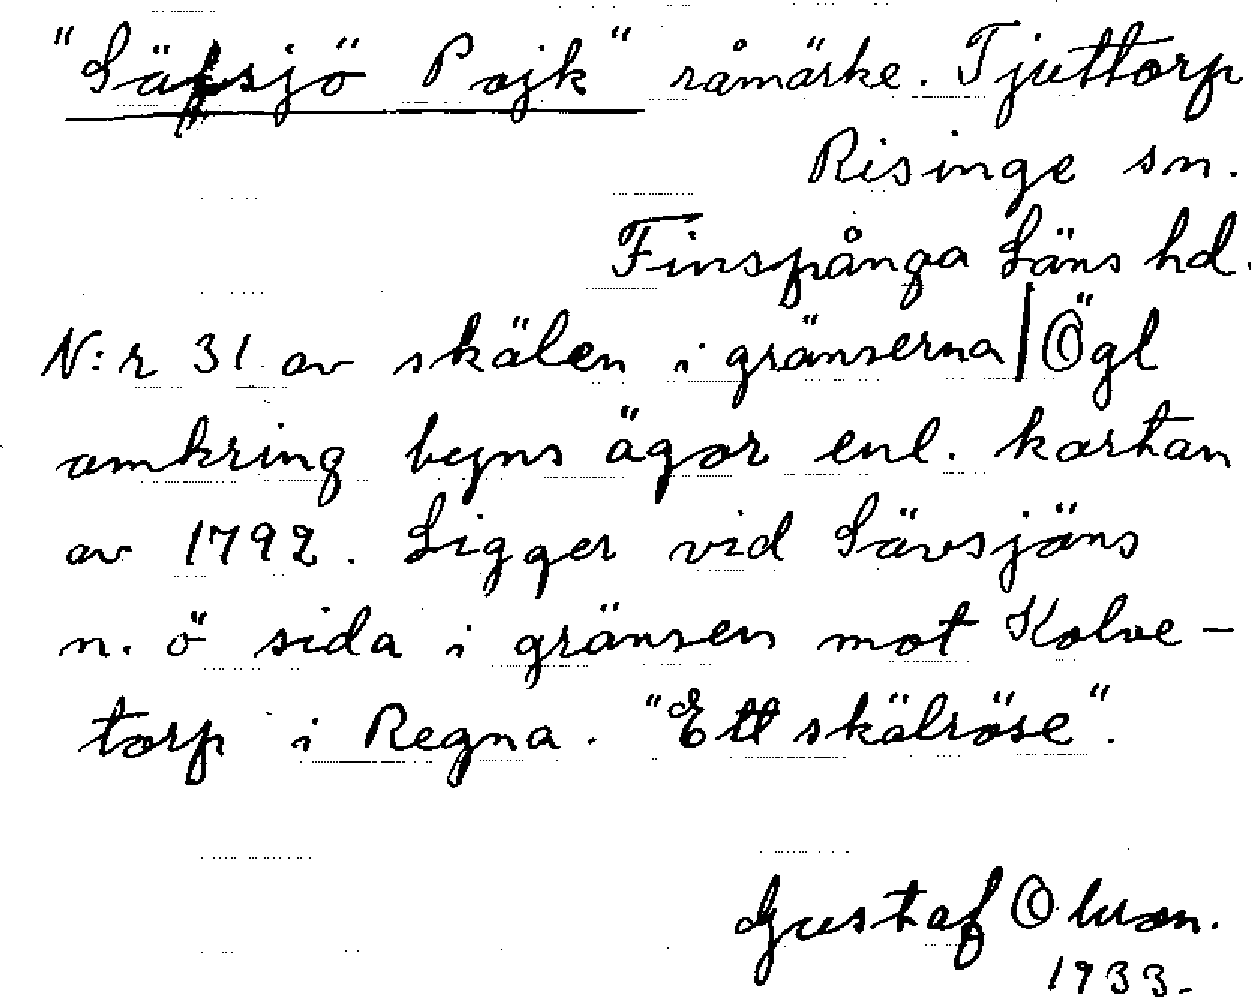 "Säfsjö Pojk" råmärke. Tjuttorp
Risinge sn.
Finspånga Läns hd.
N:r 31 av skälen i gränserna | Ögl
omkring byns ägor enl. kartan
av 1792. Ligger vid Sävsjöns
n. ö sida i gränsen mot Kolve-
torp i Regna. "Ett skälröse".
Gustaf Olsson.
1933.